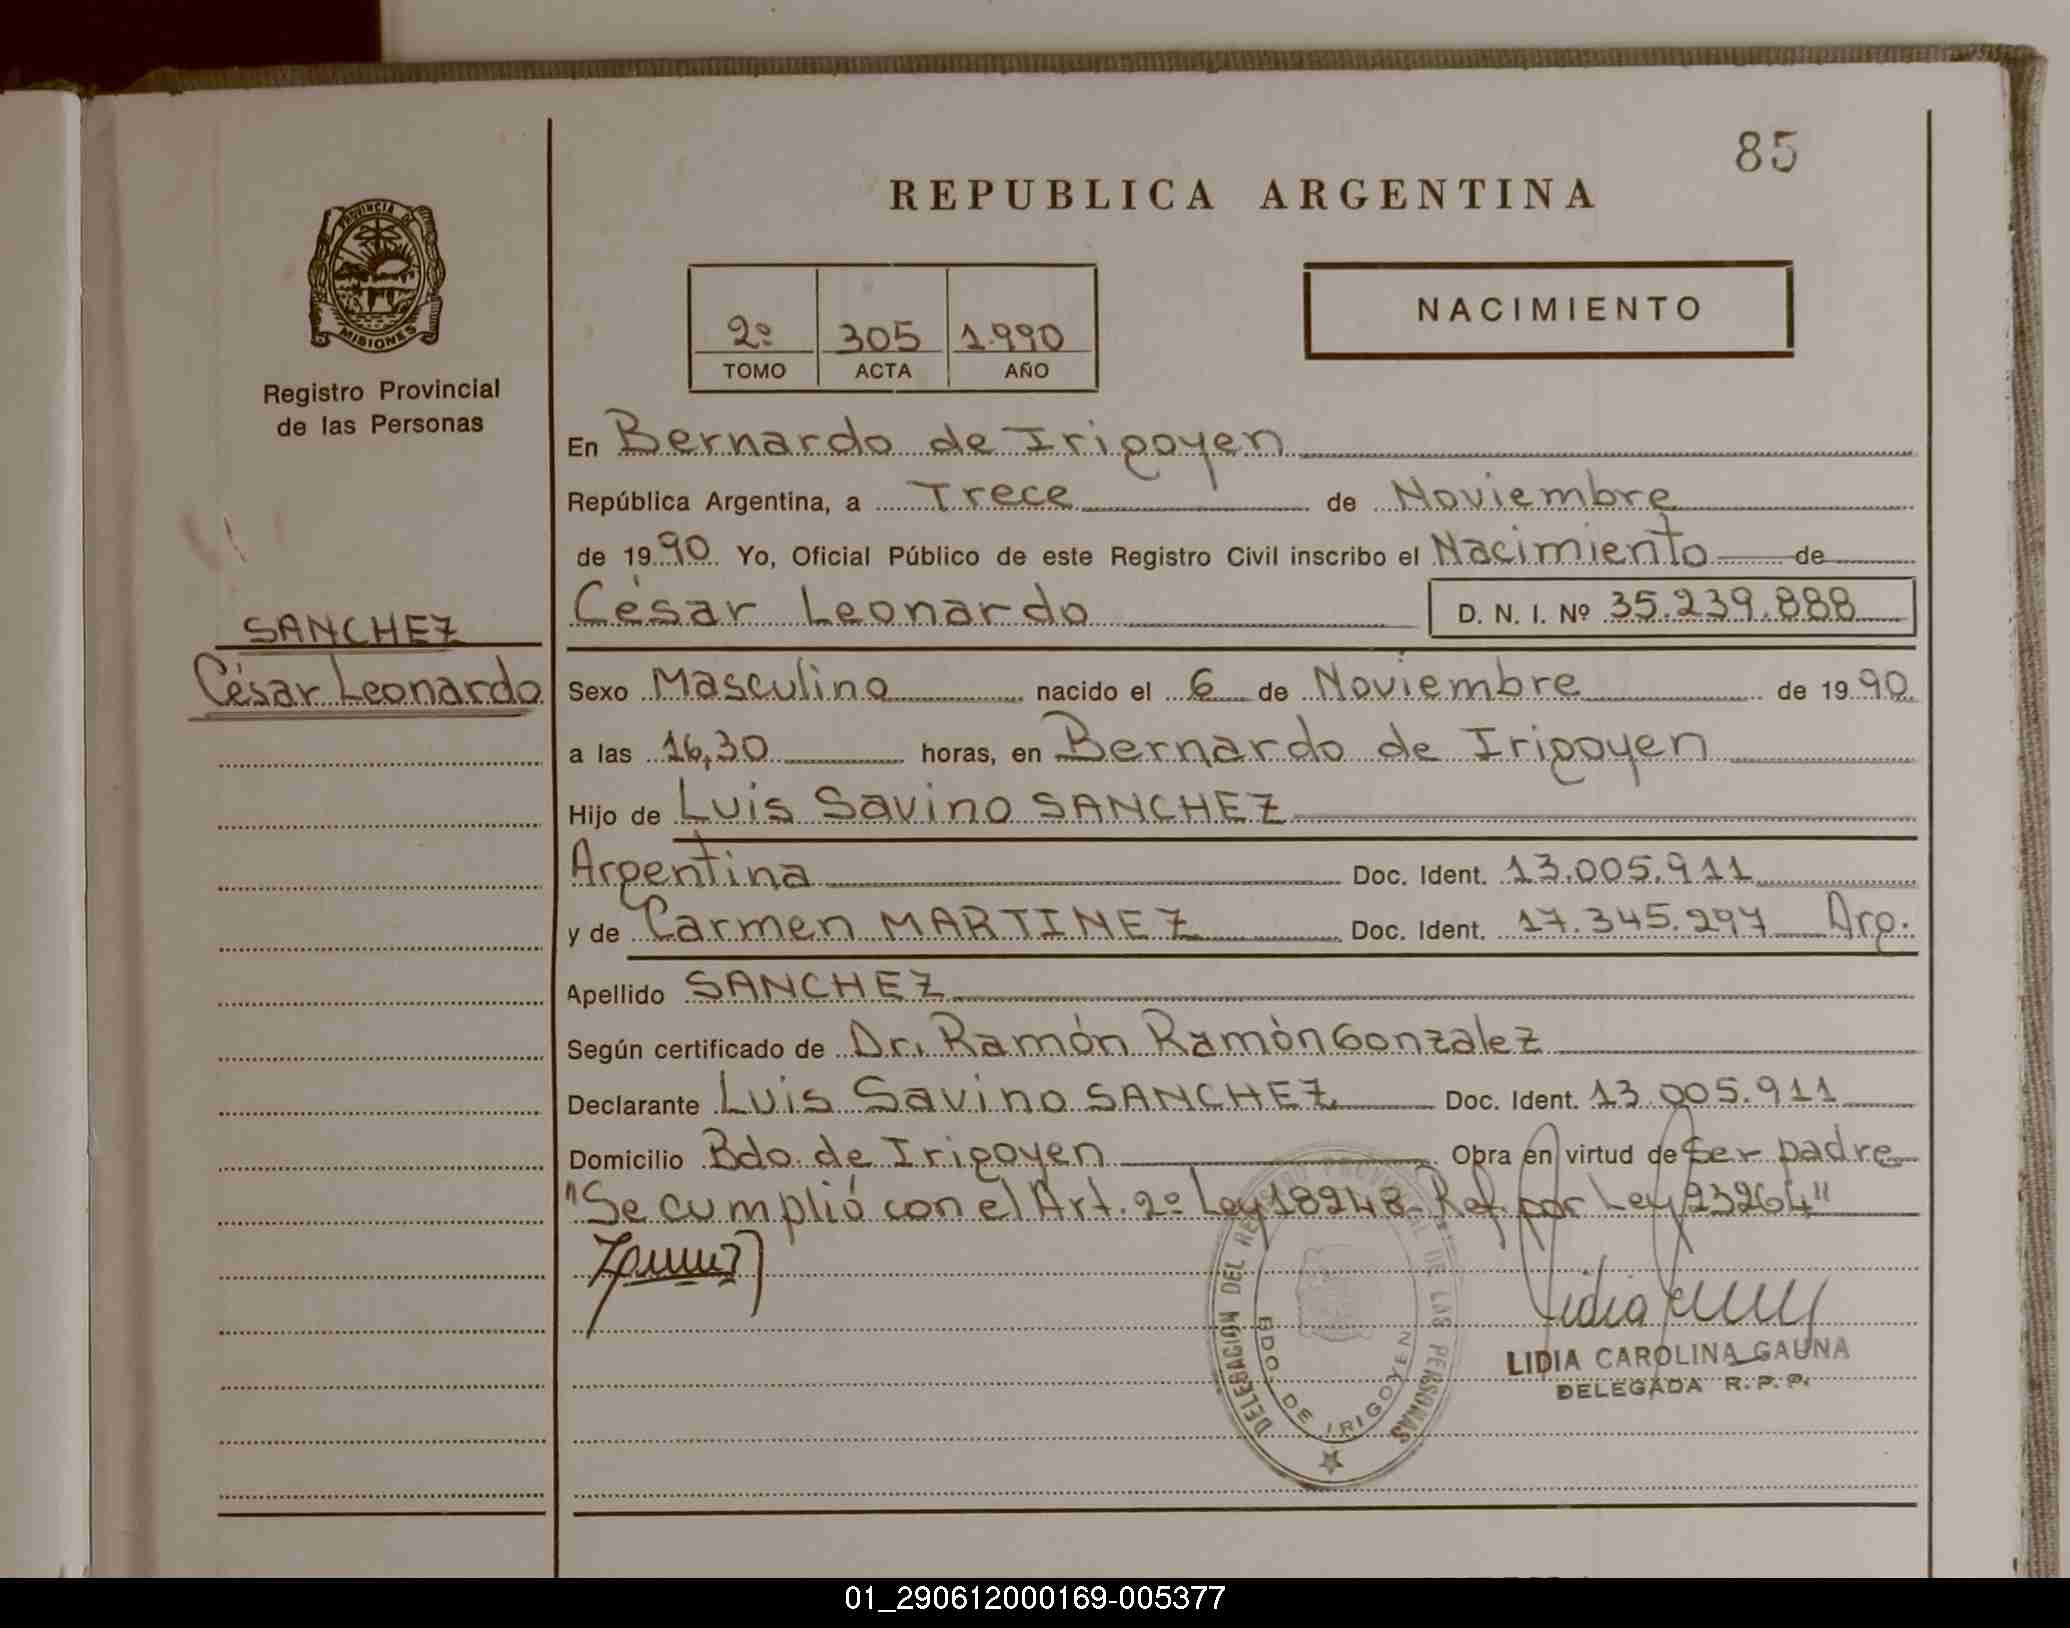 85
REPUBLICA ARGENTINA
PROVINCIA DE
MISIONES
Registro Provincial
de las Personas
NACIMIENTO
2º 305 1.990
TOMO ACTA AÑO
En Bernardo de Irigoyen
República Argentina, a Trece de Noviembre
de 1990 Yo, Oficial Público de este Registro Civil inscribo el Nacimiento de
César Leonardo D. N. I. Nº 35.239.888
SANCHEZ
César Leonardo
Sexo Masculino nacido el 6 de Noviembre de 1990
a las 16,30 horas, en Bernardo de Irigoyen
Hijo de Luis Savino SANCHEZ
Argentina Doc. Ident. 13.005.911
y de Carmen MARTINEZ Doc. Ident. 17.345.297 Arg.
Apellido SANCHEZ
Según certificado de Dr. Ramón Ramón Gonzalez
Declarante Luis Savino SANCHEZ Doc. Ident. 13.005.911
Domicilio Bdo. de Irigoyen Obra en virtud de Ser padre
"Se cumplió con el Art. 2º Ley 18248 Ref. por Ley 23264"
DELEGACION DEL REGISTRO PROVINCIAL DE LAS PERSONAS
BDO. DE IRIGOYEN
LIDIA CAROLINA GAUNA
DELEGADA R.P.P.
01_290612000169-005377